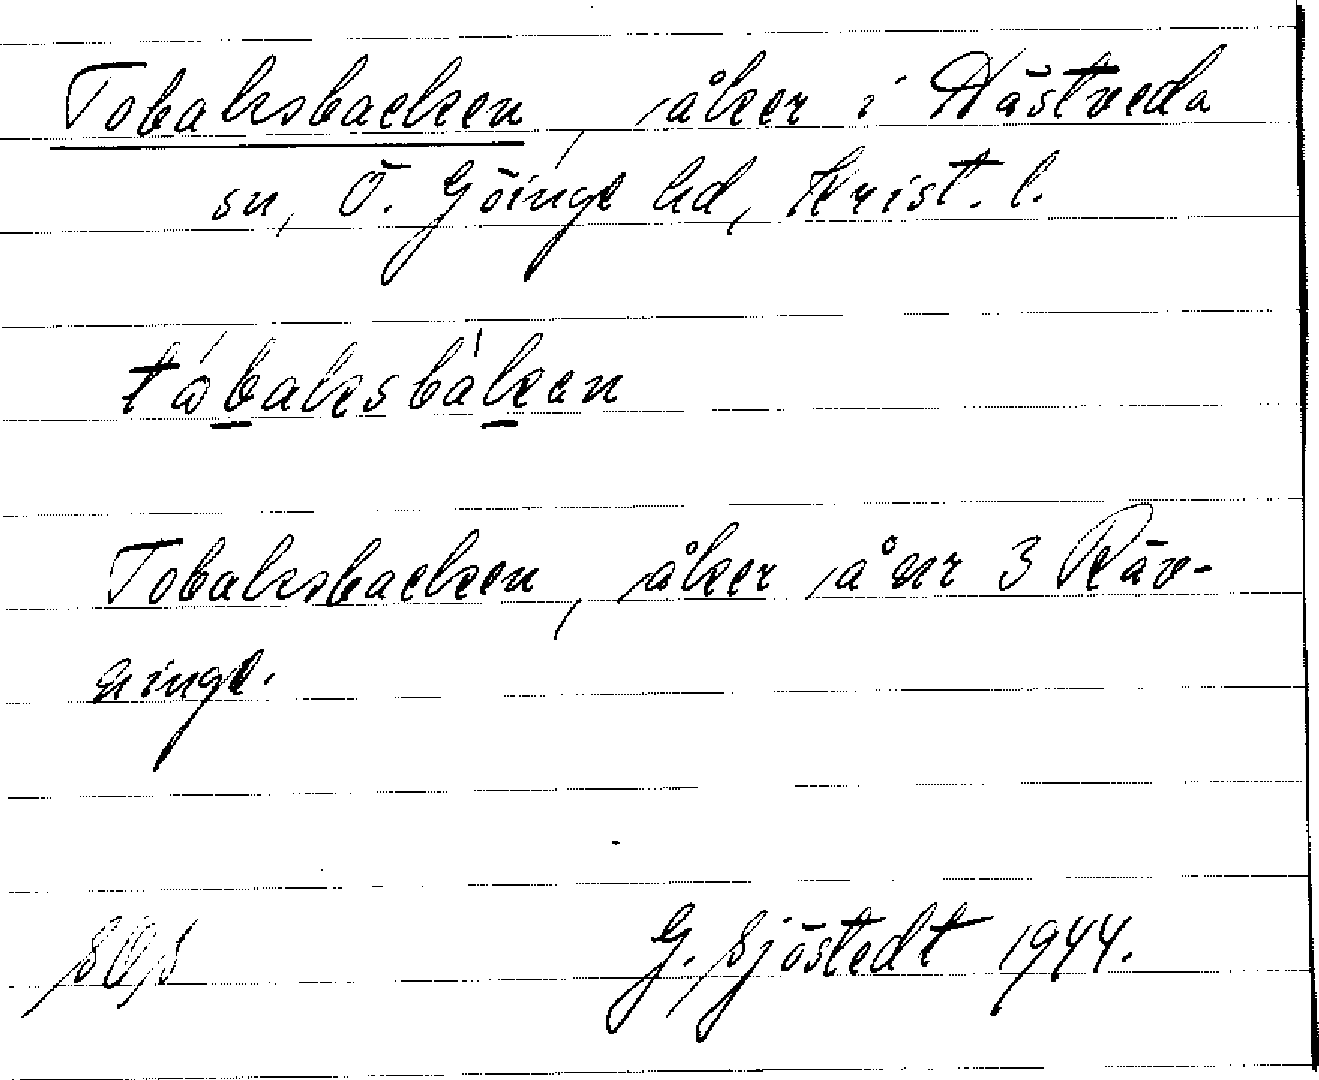 Tobaksbacken, åker i Hästveda
sn, Ö. Göinge hd, Krist. l.
tåbaksbakan
Tobaksbacken, åker å nr 3 Räv-
ninge.
G. Sjöstedt 1944.